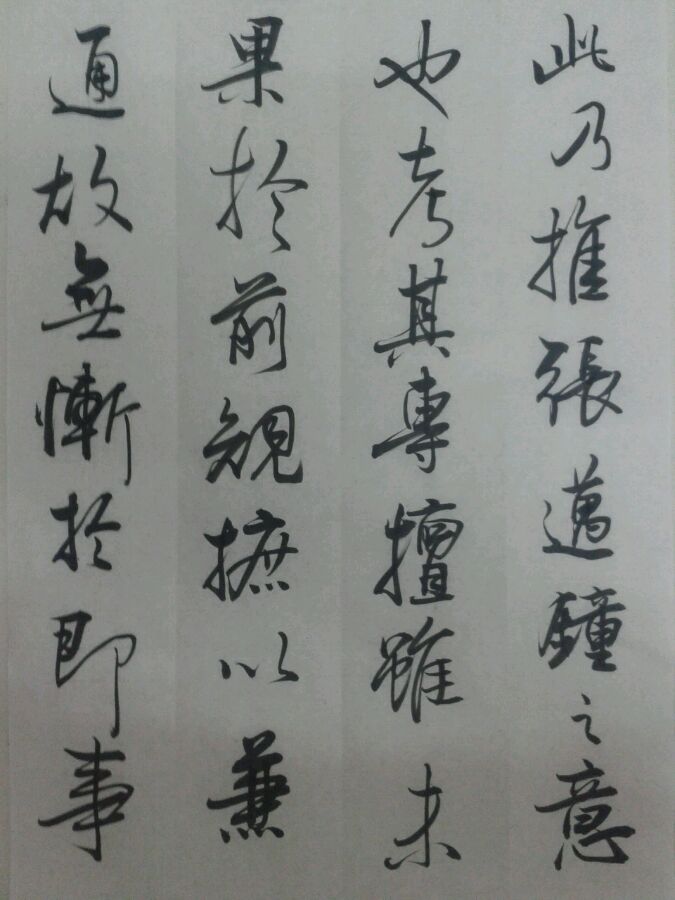 此乃推張邁鐘之意
也考其專擅雖未
果於前規摭以兼
通故無慚於即事